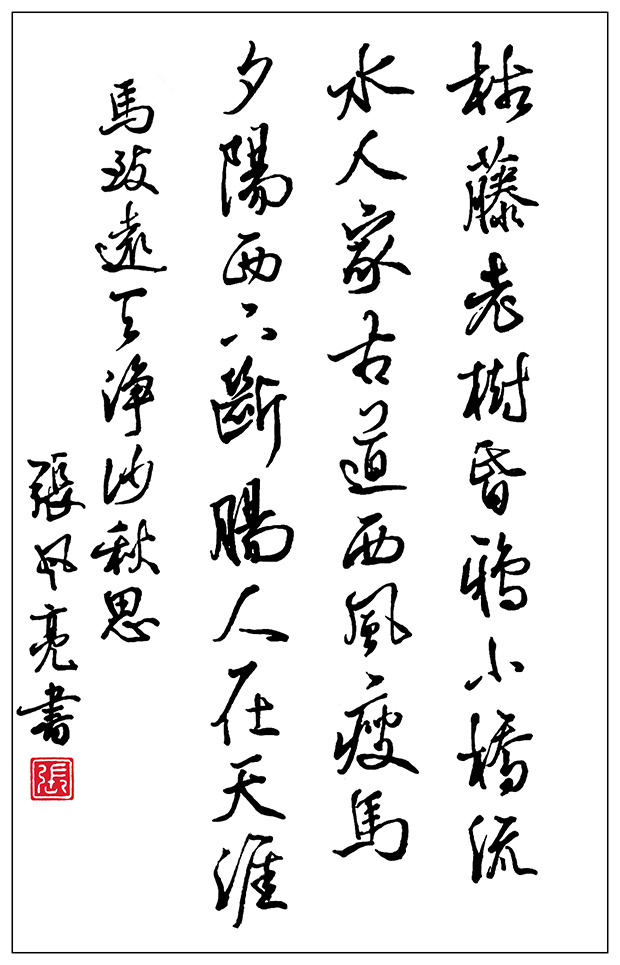 枯藤老樹昏鴉小橋流
水人家古道西風瘦馬
夕陽西下斷腸人在天涯
馬致遠天淨沙秋思
張風亮書
張